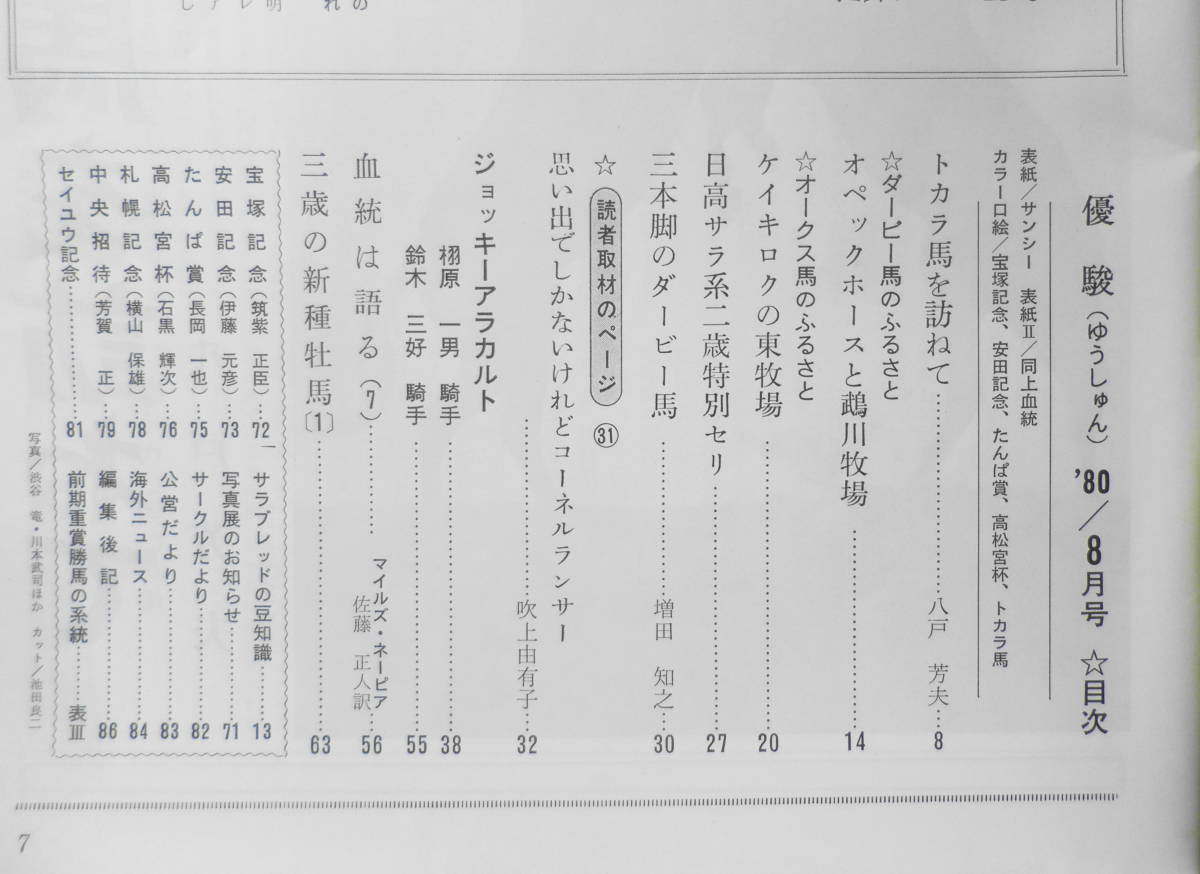 優駿（ゆうしゅん）'80／8月号 ☆目次
表紙／サンシー 表紙Ⅱ／同上血統
カラー口絵／宝塚記念、安田記念、たんぱ賞、高松宮杯、トカラ馬
トカラ馬を訪ねて……八戸 芳夫…8
☆ダービー馬のふるさと
オペックホースと鵡川牧場……14
☆オークス馬のふるさと
ケイキロクの東牧場……20
日高サラ系二歳特別セリ……27
三本脚のダービー馬……増田 知之…30
☆読者取材のページ ㉛
思い出でしかないけれどコーネルランサー
……吹上由有子…32
ジョッキーアラカルト
栩原 一男 騎手……38
鈴木 三好 騎手……55
血統は語る（7）……マイルズ・ネーピア
佐藤 正人訳…56
三歳の新種牡馬〔1〕……63
宝塚記念（筑紫 正臣）…72
安田記念（伊藤 元彦）…73
たんぱ賞（長岡 一也）…75
高松宮杯（石黒 輝次）…76
札幌記念（横山 保雄）…78
中央招待（芳賀 正）…79
セイユウ記念……81
サラブレッドの豆知識……13
写真展のお知らせ……71
サークルだより……82
公営だより……83
海外ニュース……84
編集後記……86
前期重賞勝馬の系統……表Ⅲ
写真／渋谷 竜・川本武司ほか カット／池田良二
7